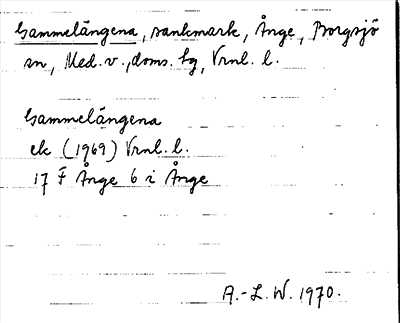 Gammelängena, sankmark, Ånge, Borgsjö
sn, Med. v., doms. tg, Vrnl. l.
Gammelängena
ek (1969) Vrnl. l.
17 F Ånge 6 i Ånge
A.-L. W. 1970.